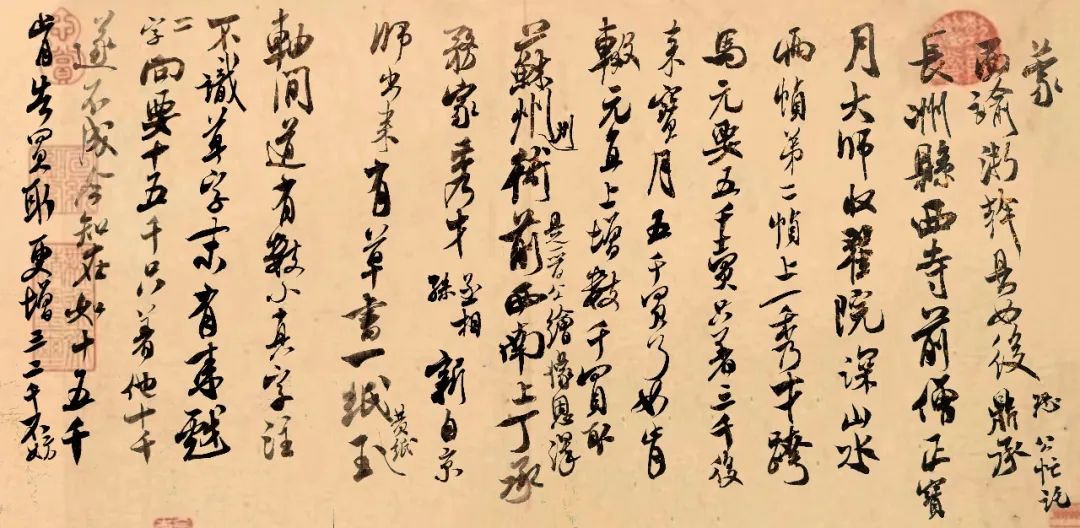 蒙
面諭浙幹具如後恐公忙託鼎承
長洲縣西寺前僧正寶
月大師收翟院深山水
兩幀第二幀上一秀才跨
馬元要五千賣只著三千後
來寶月五千買了如肯
輟元直上增數千買取
蘇州衙前西南上丁承
是晉公繪像恩澤
務家秀才丞相孫新自京
師出來有草書一紙黃紙玉
軸間道有數小真字注
不識草字末有來戲
二字向要十五千只著他十千
遂不成今知在如十五千
肯告買取更增三二千不妨